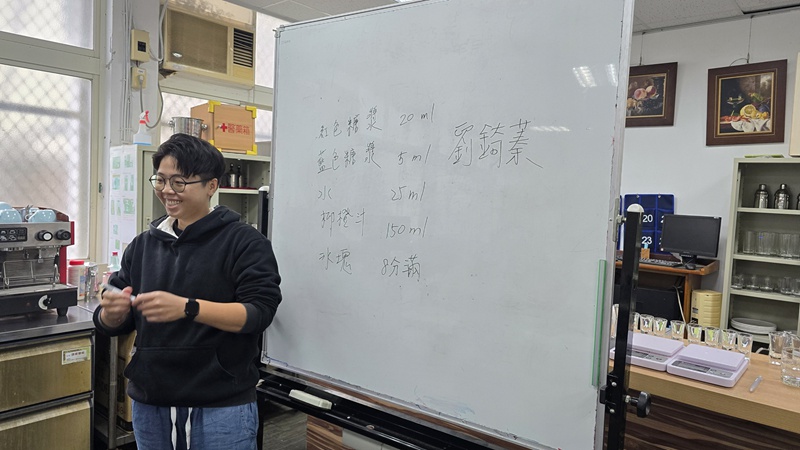 紅色糖漿 20 ml
藍色糖漿 5 ml
水 25 ml
柳橙汁 150 ml
冰塊 8分滿
劉錡蓁
醫藥箱
20
23